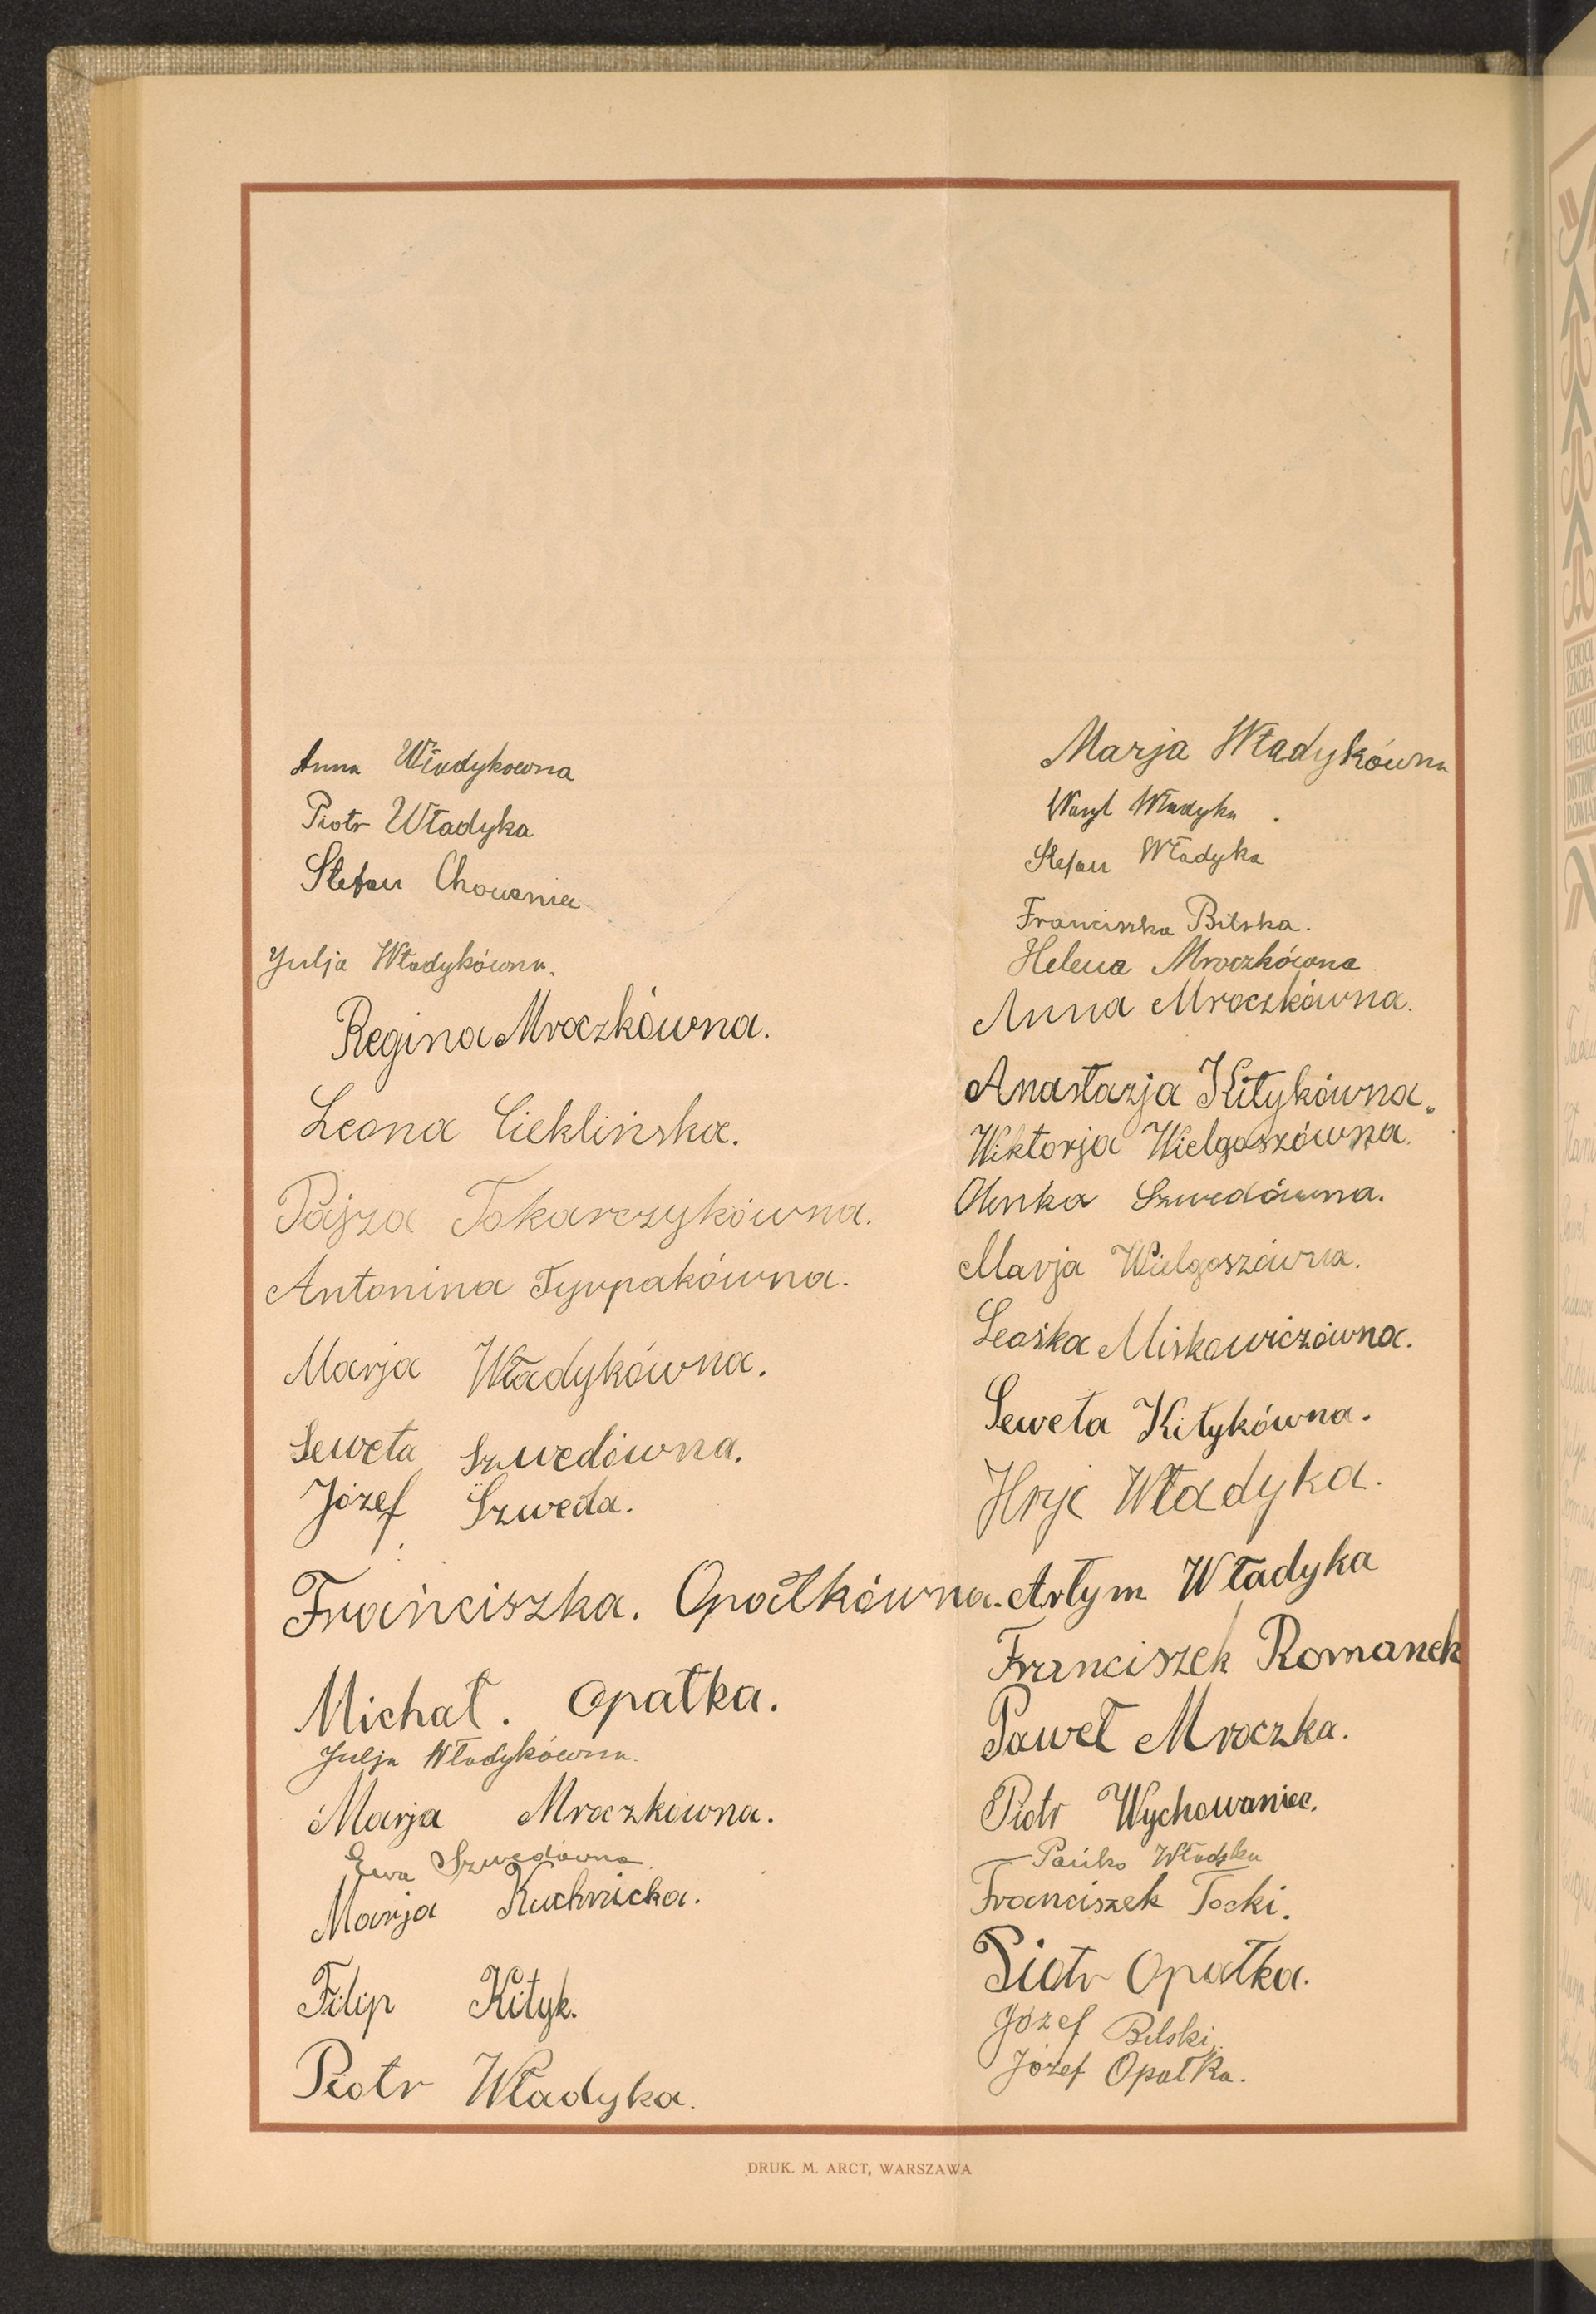 Anna Władykowna
Piotr Władyka
Stefan Chowaniec
Julja Władykówna.
Regina Mroczkówna.
Leona Cieklińska.
Pajza Tokarczykówna.
Antonina Tyrpakówna.
Marja Władykówna.
Seweta Szwedówna.
Józef Szweda.
Franciszka. Opałkówna.
Michał. Opałka.
Julja Władykówna.
Marja Mroczkówna.
Ewa Szwedówna
Marja Kuchnicka.
Filip Kityk.
Piotr Władyka.
Marja Władykówna
Wasyl Władyka
Stefan Władyka
Franciszka Bilska.
Helena Mroczkówna
Anna Mroczkówna.
Anastazja Kitykówna.
Wiktorja Wielgoszówna.
Olenka Szwedówna.
Marja Wielgoszówna.
Leośka Miskowiczówna.
Seweta Kitykówna.
Hryc Władyka.
Artym Władyka
Franciszek Romanek
Paweł Mroczka.
Piotr Wychowaniec.
Pańko Władyka
Franciszek Tocki.
Piotr Opałka.
Józef Bilski.
Józef Opałka.
DRUK. M. ARCT, WARSZAWA
SCHOOL
SZKOŁA